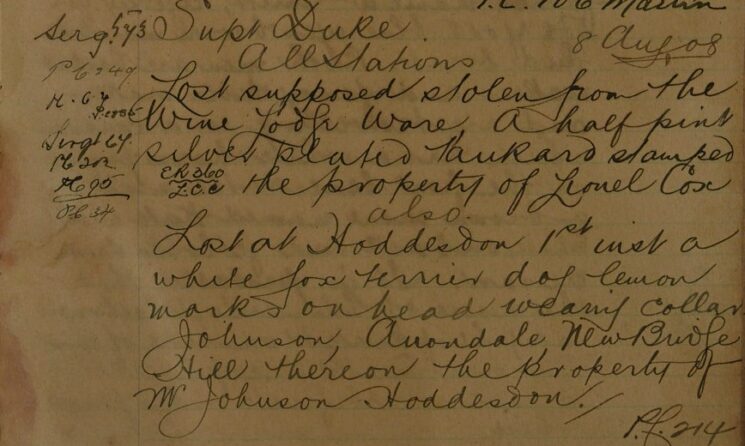 P.C. 106 Martin
Sergt 573 Supt Duke.
All Stations 8 Aug 08
PC 249
Lost supposed stolen from the
Wine Lodge Ware, A half pint
Sergt 64
silver plated Tankard stamped
PC 202
the property of Lionel Cox
PC 34
also.
Lost at Hoddesdon 1st inst a
white fox terrier dog lemon
marks on head wearing collar
Johnson, Avondale, New Bridge
Hill thereon the property of
Mr Johnson Hoddesdon./
P.C. 214